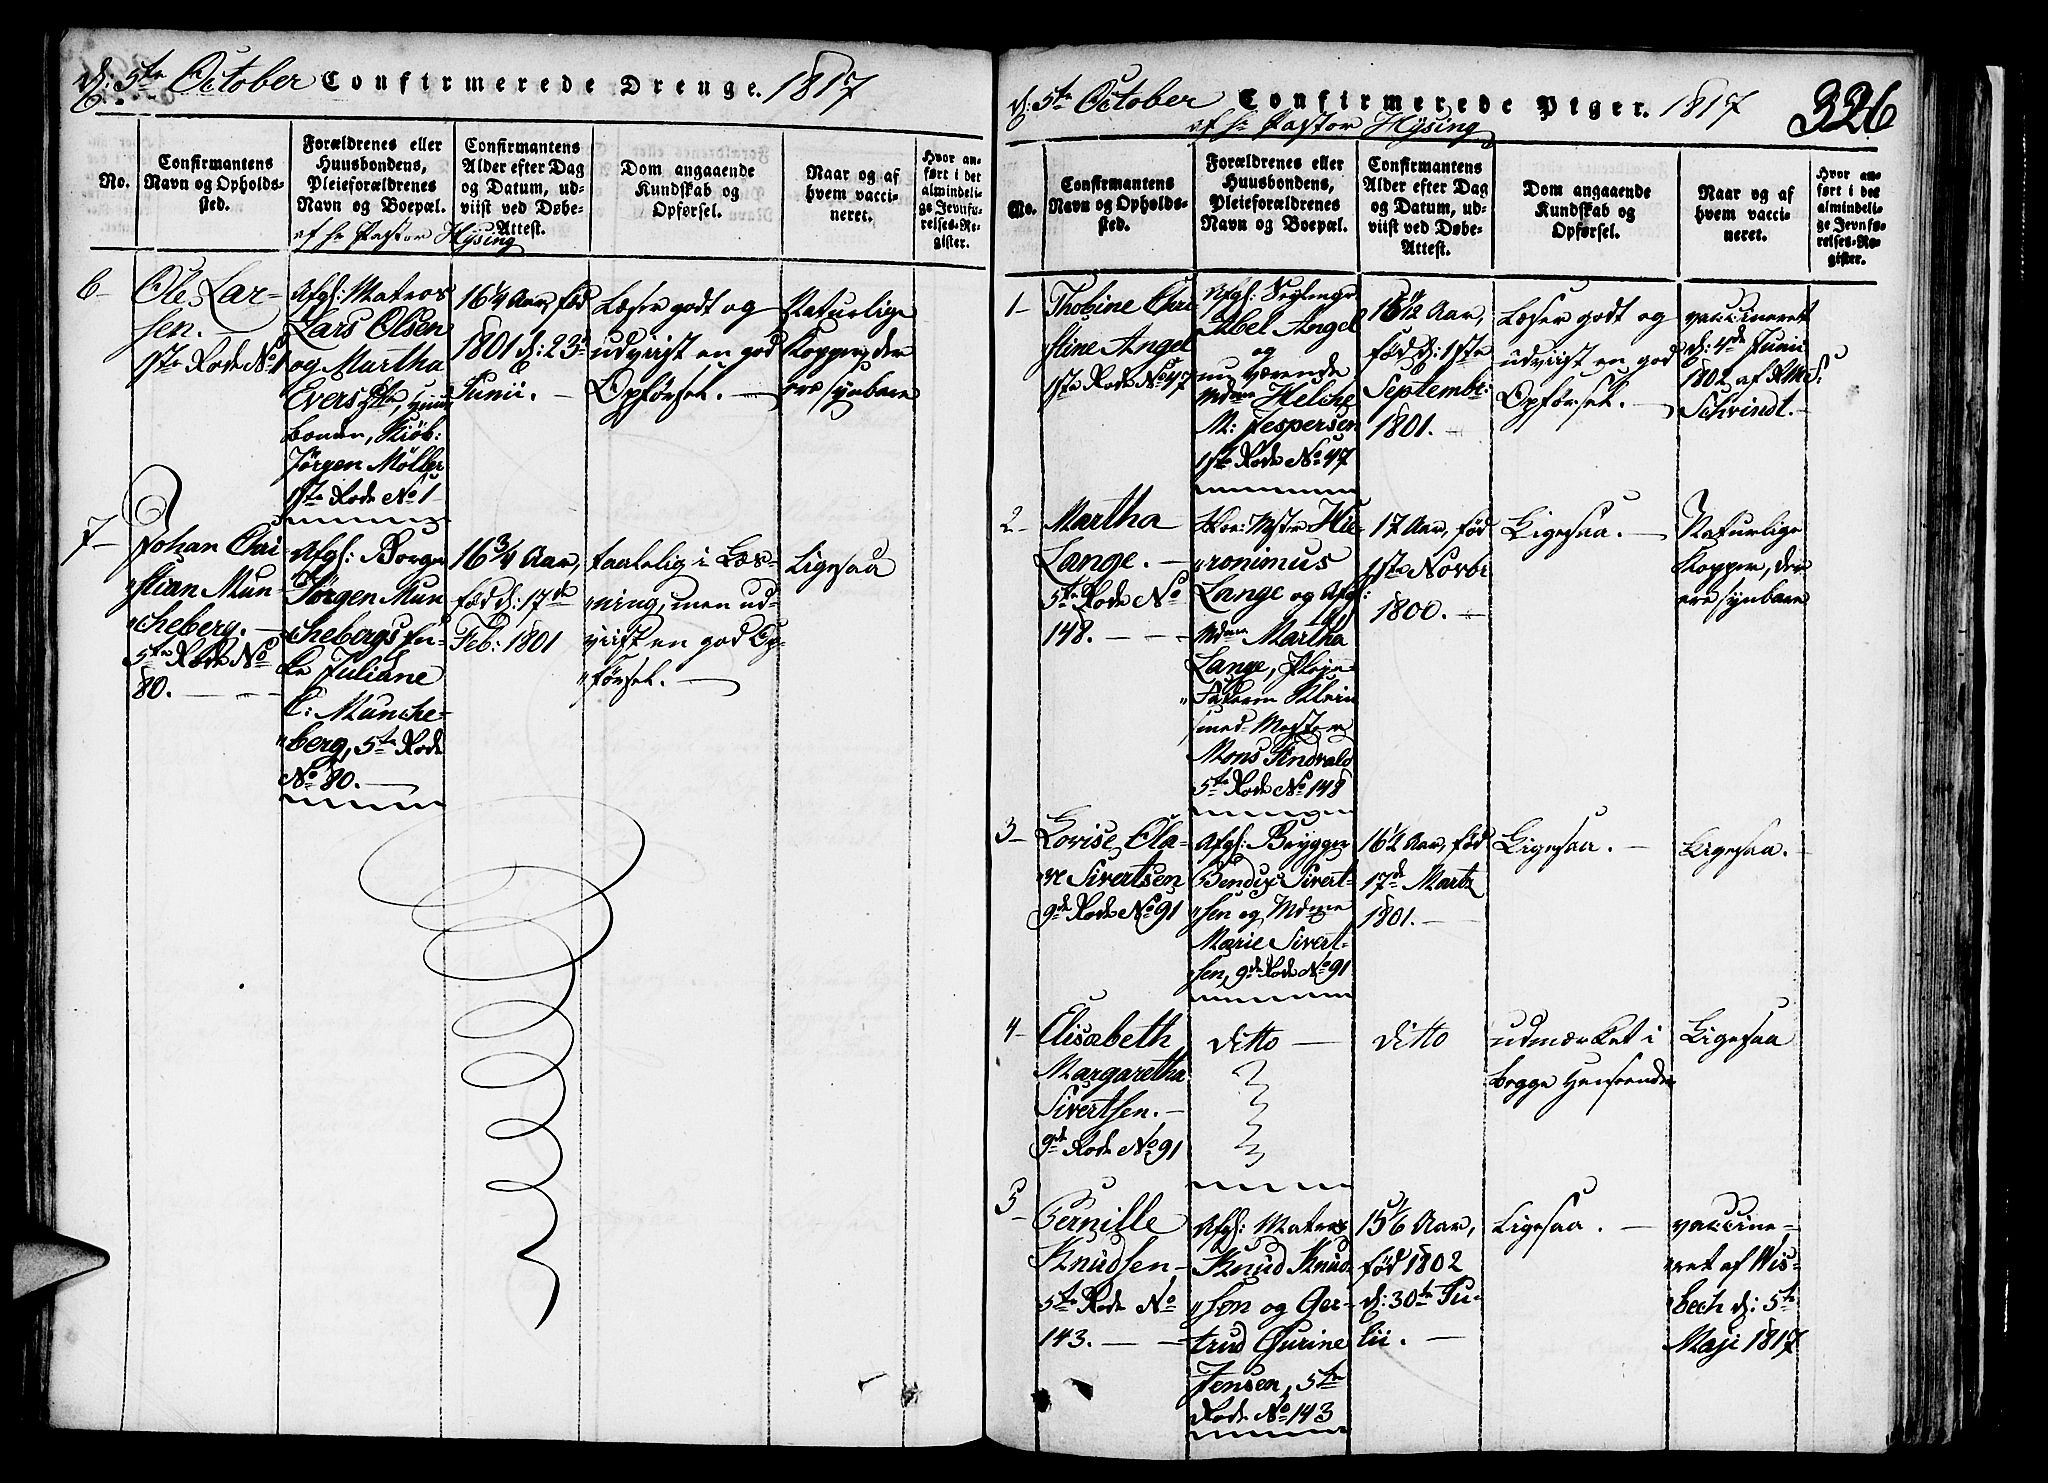 d: 5te October Confirmerede Drenge. 1817
No.
Confirmantens
Navn og Opholds-
sted.
Forældrenes eller
Huusbondens,
Pleieforældrenes
Navn og Boepæl.
af hr Pastor Hysing
Confirmantens
Alder efter Dag
og Datum, ud-
viist ved Døbe-
Attest.
Dom angaaende
Kundskab og
Opførsel.
Naar og af
hvem vacci-
neret.
Hvor an-
ført i det
almindeli-
ge Jevnfø-
relses-Re-
gister.
6-
Ole Lar-
sen.
1ste Rode No 1
Afgl: Matros
Lars Olsen
og Martha
Evers
Kiøb:
Jørgen Möller
1ste Rode No 1
16 1/4 Aar, fød
1801 d: 23de
Junii. -
Læser godt og
udviist en god
Opførsel. -
Naturlige
Kopper, der
ere synbare
7-
Johan Chri
"stian Mun
"cheberg. -
5te Rode No
80. -
Afgl: Borger
Jørgen Mun
"chebergs En-
ke Juliane
C: Munche-
"berg, 5te Rode
No 80. -
16 3/4 Aar,
fød d: 17de
Feb: 1801
taalelig i Læs-
"ning, men ud-
viist en god Op-
"førsel. -
Ligesaa
d: 5te October Confirmerede Piger. 1817
326
af hr Pastor Hysing
No.
Confirmantens
Navn og Opholds-
sted.
Forældrenes eller
Huusbondens,
Pleieforældrenes
Navn og Boepæl.
Confirmantens
Alder efter Dag
og Datum, ud-
viist ved Døbe-
Attest.
Dom angaaende
Kundskab og
Opførsel.
Naar og af
hvem vacci-
neret.
Hvor an-
ført i det
almindeli-
ge Jevnfø-
relses-Re-
gister.
1-
Thobine Chri
stine Angel
1ste Rode No 47
Afgl:
Abel Angel
og
nu værende
Mdme Helche
M: Jespersen
1ste Rode No 47
16 1/12 Aar,
fød d: 1ste
Septembr:
1801. -
Læser godt og
udviist en god
Opførsel. -
vaccineret
d: 4de Junii
1802 af
Schvindt. -
2-
Martha
Lange. -
5te Rode No
148. - - -
Skoe: Mstr Hie-
"ronimus
Lange og Afgl:
Mdme Martha
Lange, Pleje
"Faderen Klein
smed-Mester
Mons Tindvald
5te Rode No 148
17 Aar, fød
1ste Novbr
1800. -
Ligesaa. -
Naturlige
Kopper, der
ere synbare
3-
Lovise Ola-
"ve Sivertsen
9de Rode No 91
Afgl: Brygger
Bendix Sivert-
"sen og Mdme
Marie Sivert-
"sen, 9de Rode No 91
16 1/2 Aar, fød
17de Martz
1801. -
Ligesaa. -
Ligesaa. -
4-
Elisabeth
Margaretha
Sivertsen. -
9de Rode No 91
ditto -
ditto
udmærket i
begge Henseender
Ligesaa
5-
Pernille
Knudsen -
5te Rode No
143. - -
Afgl: Matros
Knud Knud-
"sen og Ger-
trud Gurine
Jensen, 5te
Rode No 143
15 1/6 Aar,
fød 1802
d: 30te Ju-
lii. -
Ligesaa. -
vaccine-
"ret af Wis-
"bech d: 5te
Maji 1817